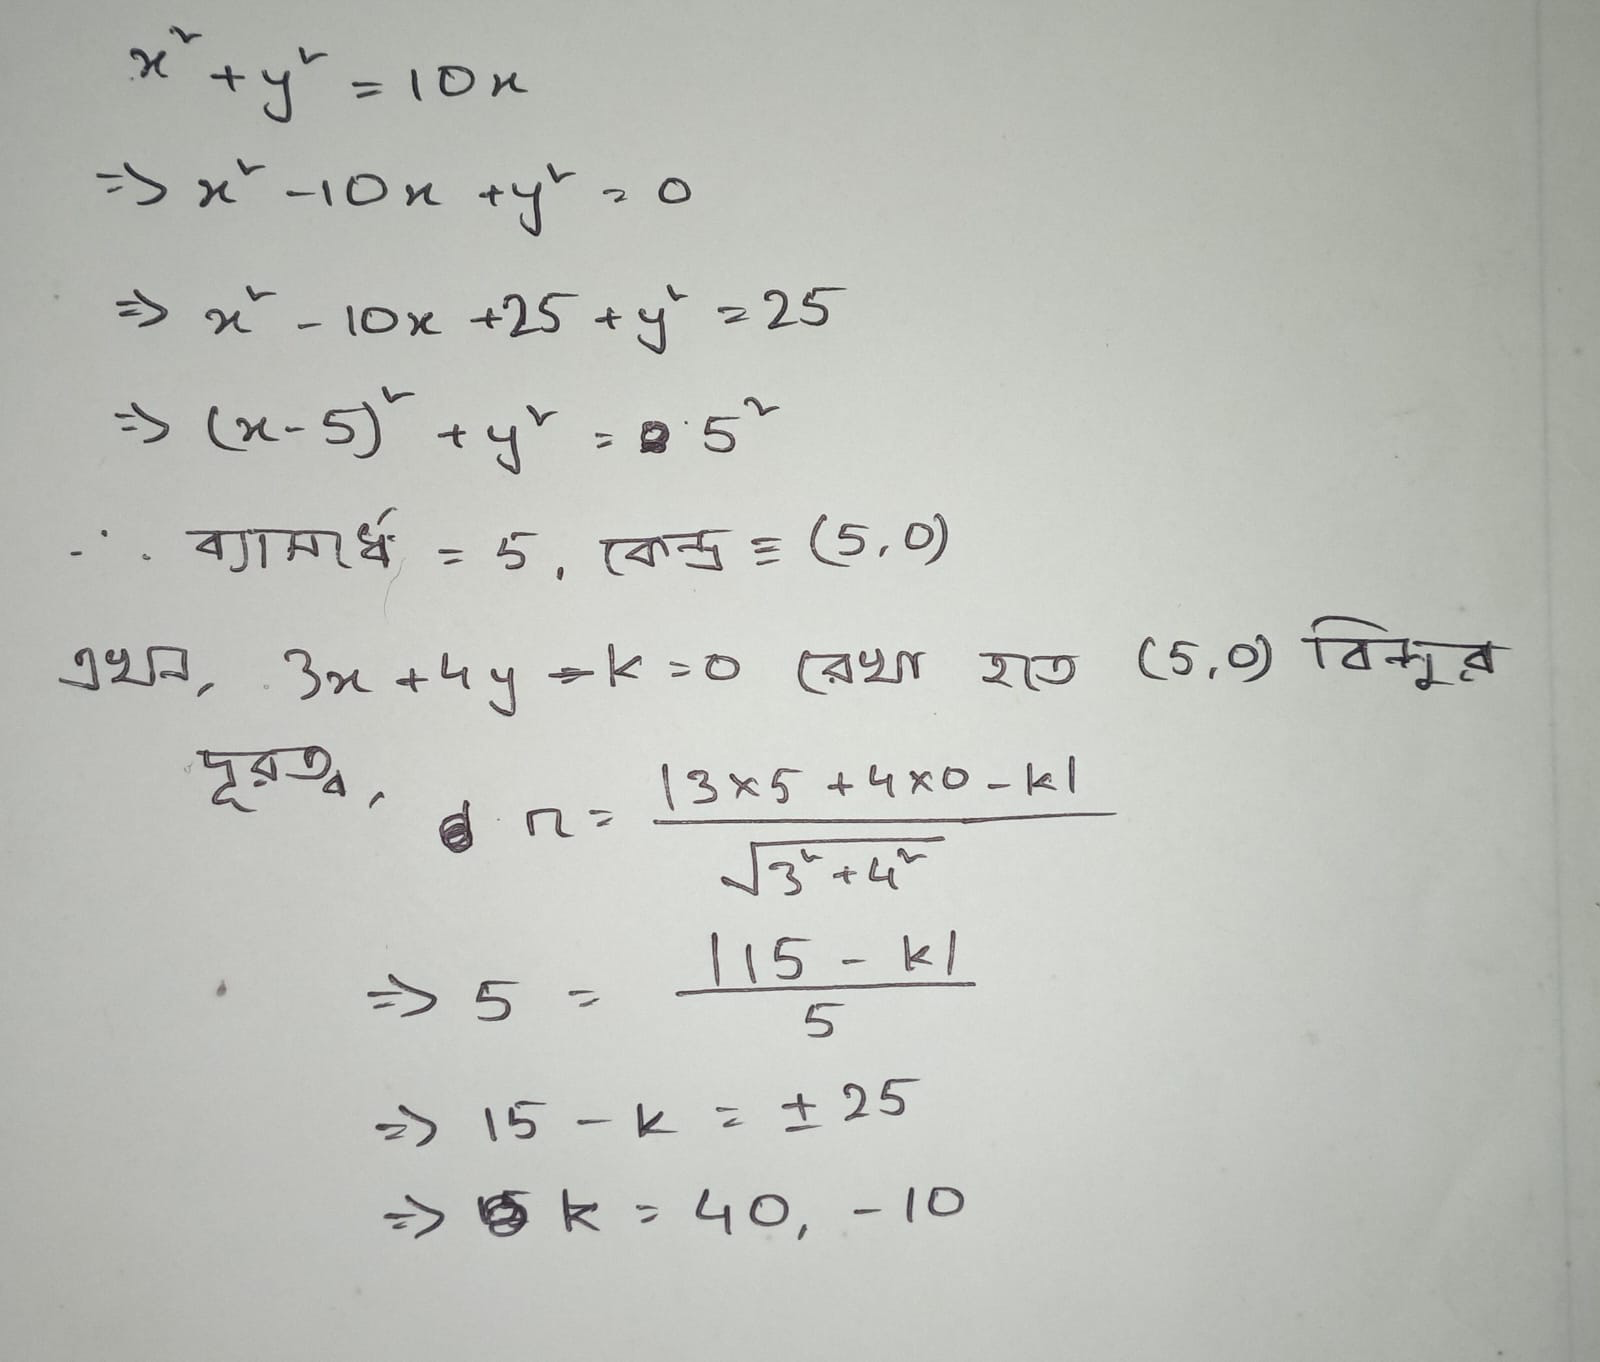 x² + y² = 10x
=> x² - 10x + y² = 0
=> x² - 10x + 25 + y² = 25
=> (x-5)² + y² = 5²
∴ ব্যাসার্ধ = 5, কেন্দ্র ≡ (5,0)
এখন, 3x + 4y - k = 0 রেখা হতে (5,0) বিন্দুর
দূরত্ব, r = |3×5 + 4×0 - k| / √3² + 4²
=> 5 = |15 - k| / 5
=> 15 - k = ± 25
=> k = 40, -10